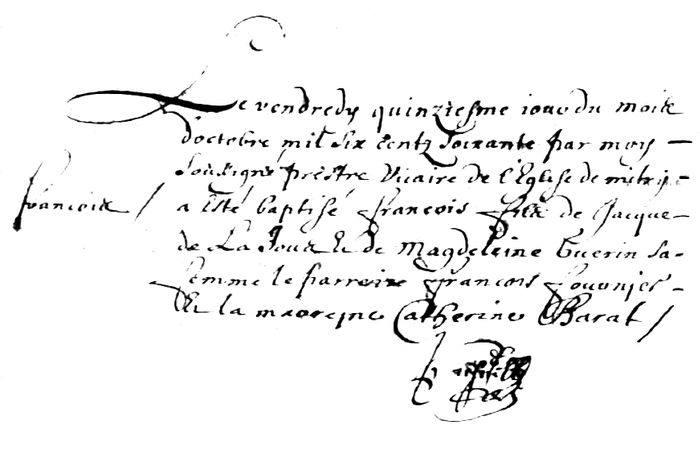 Le vendredy quinziesme jour du mois
d'octobre mil six centz soixante par moy
soubsigné prestre Vicaire de l'Eglise de mitry
françois / a Esté baptisé françois filz de Jacque
de La Jour Et de Magdeleine Guerin sa
femme le parreine françois fournier
Et la marreyne Catherine Barat /